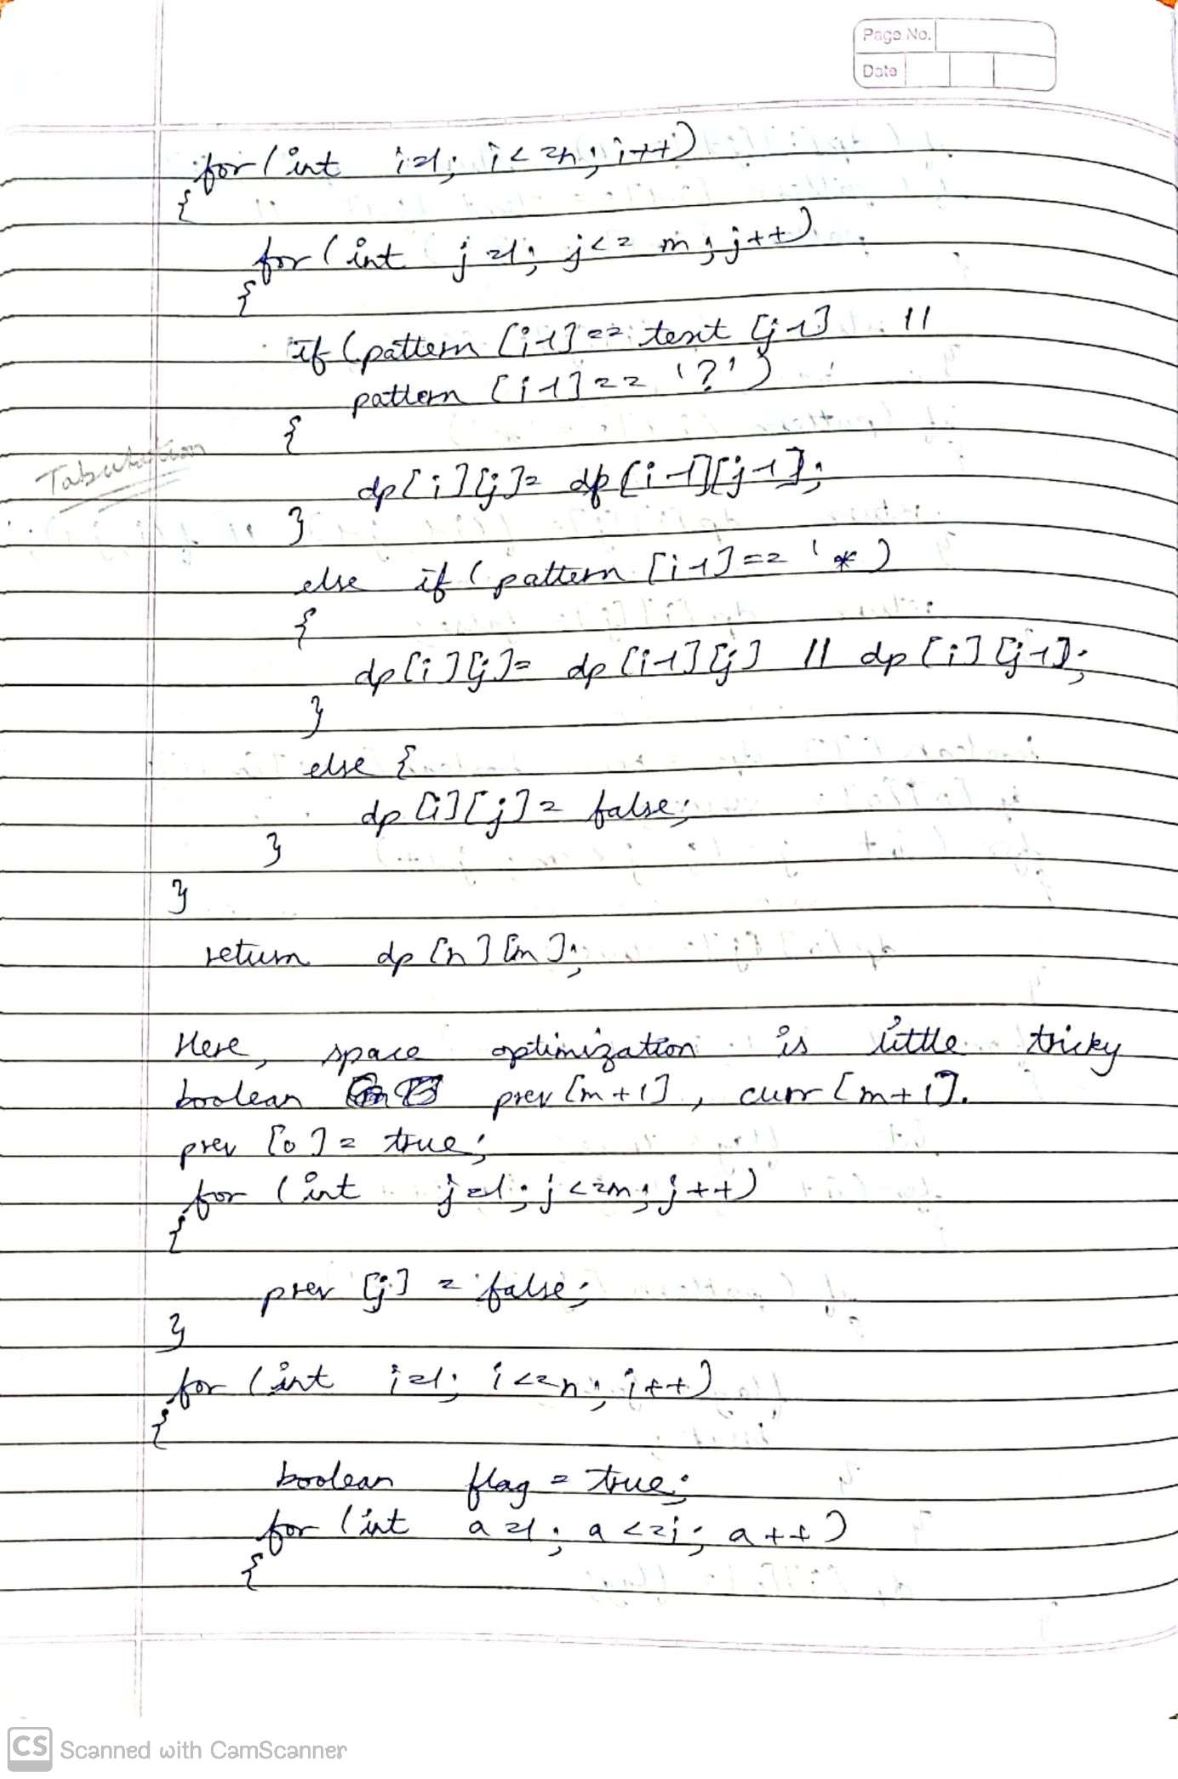 Page No.
Date
for (int i=1; i<=n; i++)
{
for (int j=1; j<=m; j++)
{
if (pattern [i-1]== text [j-1] ||
pattern [i-1]== '?')
{
Tabulation
dp[i][j]= dp[i-1][j-1];
}
else if (pattern [i-1]== '*)
{
dp[i][j]= dp[i-1][j] || dp[i][j-1];
}
else {
dp[i][j]= false;
}
}
return dp[n][m];
Here, space optimization is little tricky
boolean prev [m+1], curr [m+1].
prev [0]= true;
for (int j=1; j<=m; j++)
{
prev [j] = false;
}
for (int i=1; i<=n; i++)
{
boolean flag = true;
for (int a=1; a<=i; a++)
{
CS Scanned with CamScanner